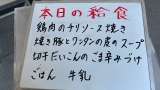 本日の給食
鶏肉のチリソース焼き
焼き豚とワンタンの皮のスープ
切干だいこんのごま辛みづけ
ごはん 牛乳